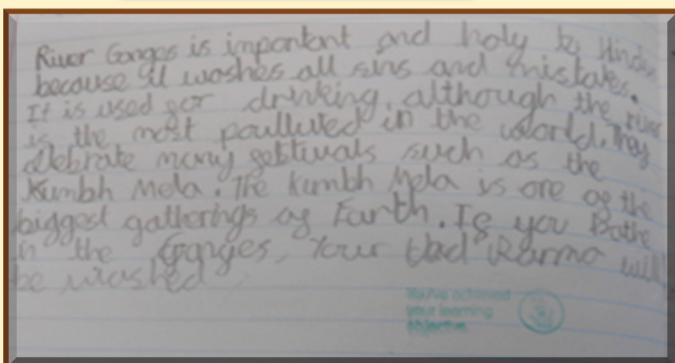 River Ganges is important and holy to Hindus
because it washes all sins and mistakes.
It is used for drinking, although the river
is the most poulluted in the world. They
celebrate many festivals such as the
Kumbh Mela. The Kumbh Mela is one of the
biggest gatherings of Earth. If you Bathe
in the Ganges, Your bad Karma will
be washed
You've achieved
your learning
objective